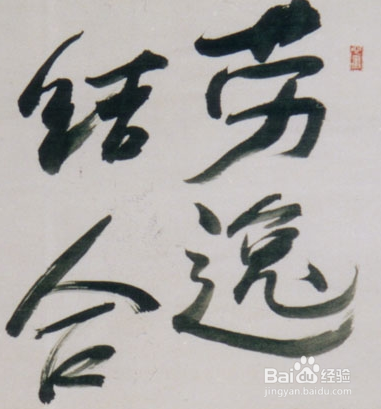 劳逸
结合
Baidu经验
jingyan.baidu.com